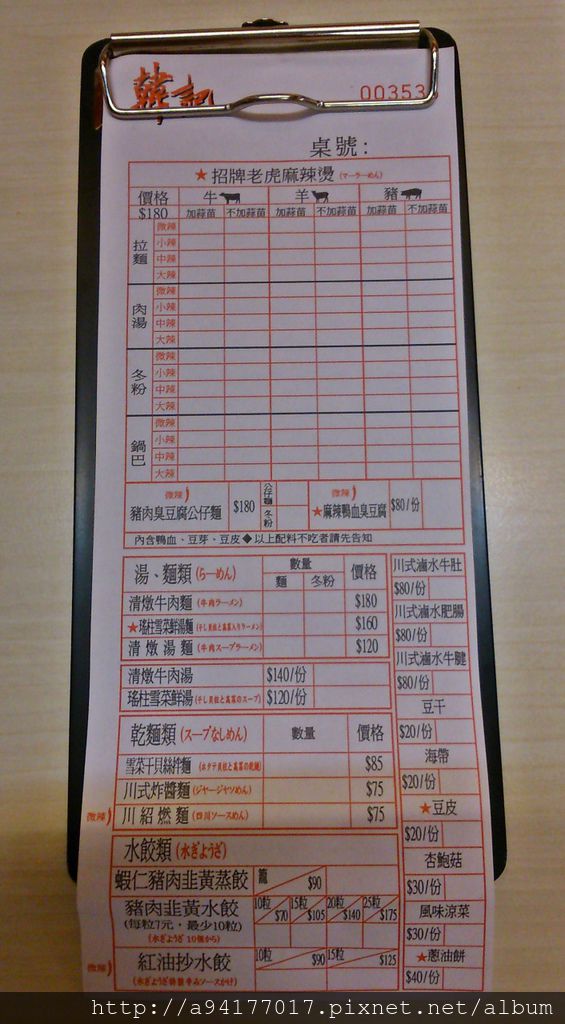 韓記
00353
桌號:
★招牌老虎麻辣燙(マーラーめん)
價格 牛 羊 豬
$180 加蒜苗 不加蒜苗 加蒜苗 不加蒜苗 加蒜苗 不加蒜苗
拉麵 微辣 小辣 中辣 大辣
肉湯 微辣 小辣 中辣 大辣
冬粉 微辣 小辣 中辣 大辣
鍋巴 微辣 小辣 中辣 大辣
微辣 豬肉臭豆腐公仔麵 $180 公仔麵 冬粉
微辣 ★麻辣鴨血臭豆腐 $80/份
內含鴨血、豆芽、豆皮◆以上配料不吃者請先告知
湯、麵類(らーめん) 數量 價格
麵 冬粉
清燉牛肉麵(牛肉ラーメン) $180
★瑤柱雪菜鮮湯麵(干し貝柱と高菜入りラーメン) $160
清燉湯麵(牛肉スープラーメン) $120
清燉牛肉湯 $140/份
瑤柱雪菜鮮湯(干し貝柱と高菜のスープ) $120/份
乾麵類(スープなしめん) 數量 價格
雪菜干貝絲拌麵(ホタテ貝柱と高菜の乾麺) $85
川式炸醬麵(ジャージャツめん) $75
微辣 川紹燃麵(四川ソースめん) $75
水餃類(水ぎょうざ)
蝦仁豬肉韭黃蒸餃 籠 $90
豬肉韭黃水餃 10粒 $70 15粒 $105 20粒 $140 25粒 $175
(每粒7元,最少10粒)
(水ぎょうざ 10個から)
微辣 紅油抄水餃 10粒 $90 15粒 $125
(水ぎょうざ特製辛みソースかけ)
川式滷水牛肚
$80/份
川式滷水肥腸
$80/份
川式滷水牛腱
$80/份
豆干
$20/份
海帶
$20/份
★豆皮
$20/份
杏鮑菇
$30/份
風味涼菜
$30/份
★蔥油餅
$40/份
http://a94177017.pixnet.net/album